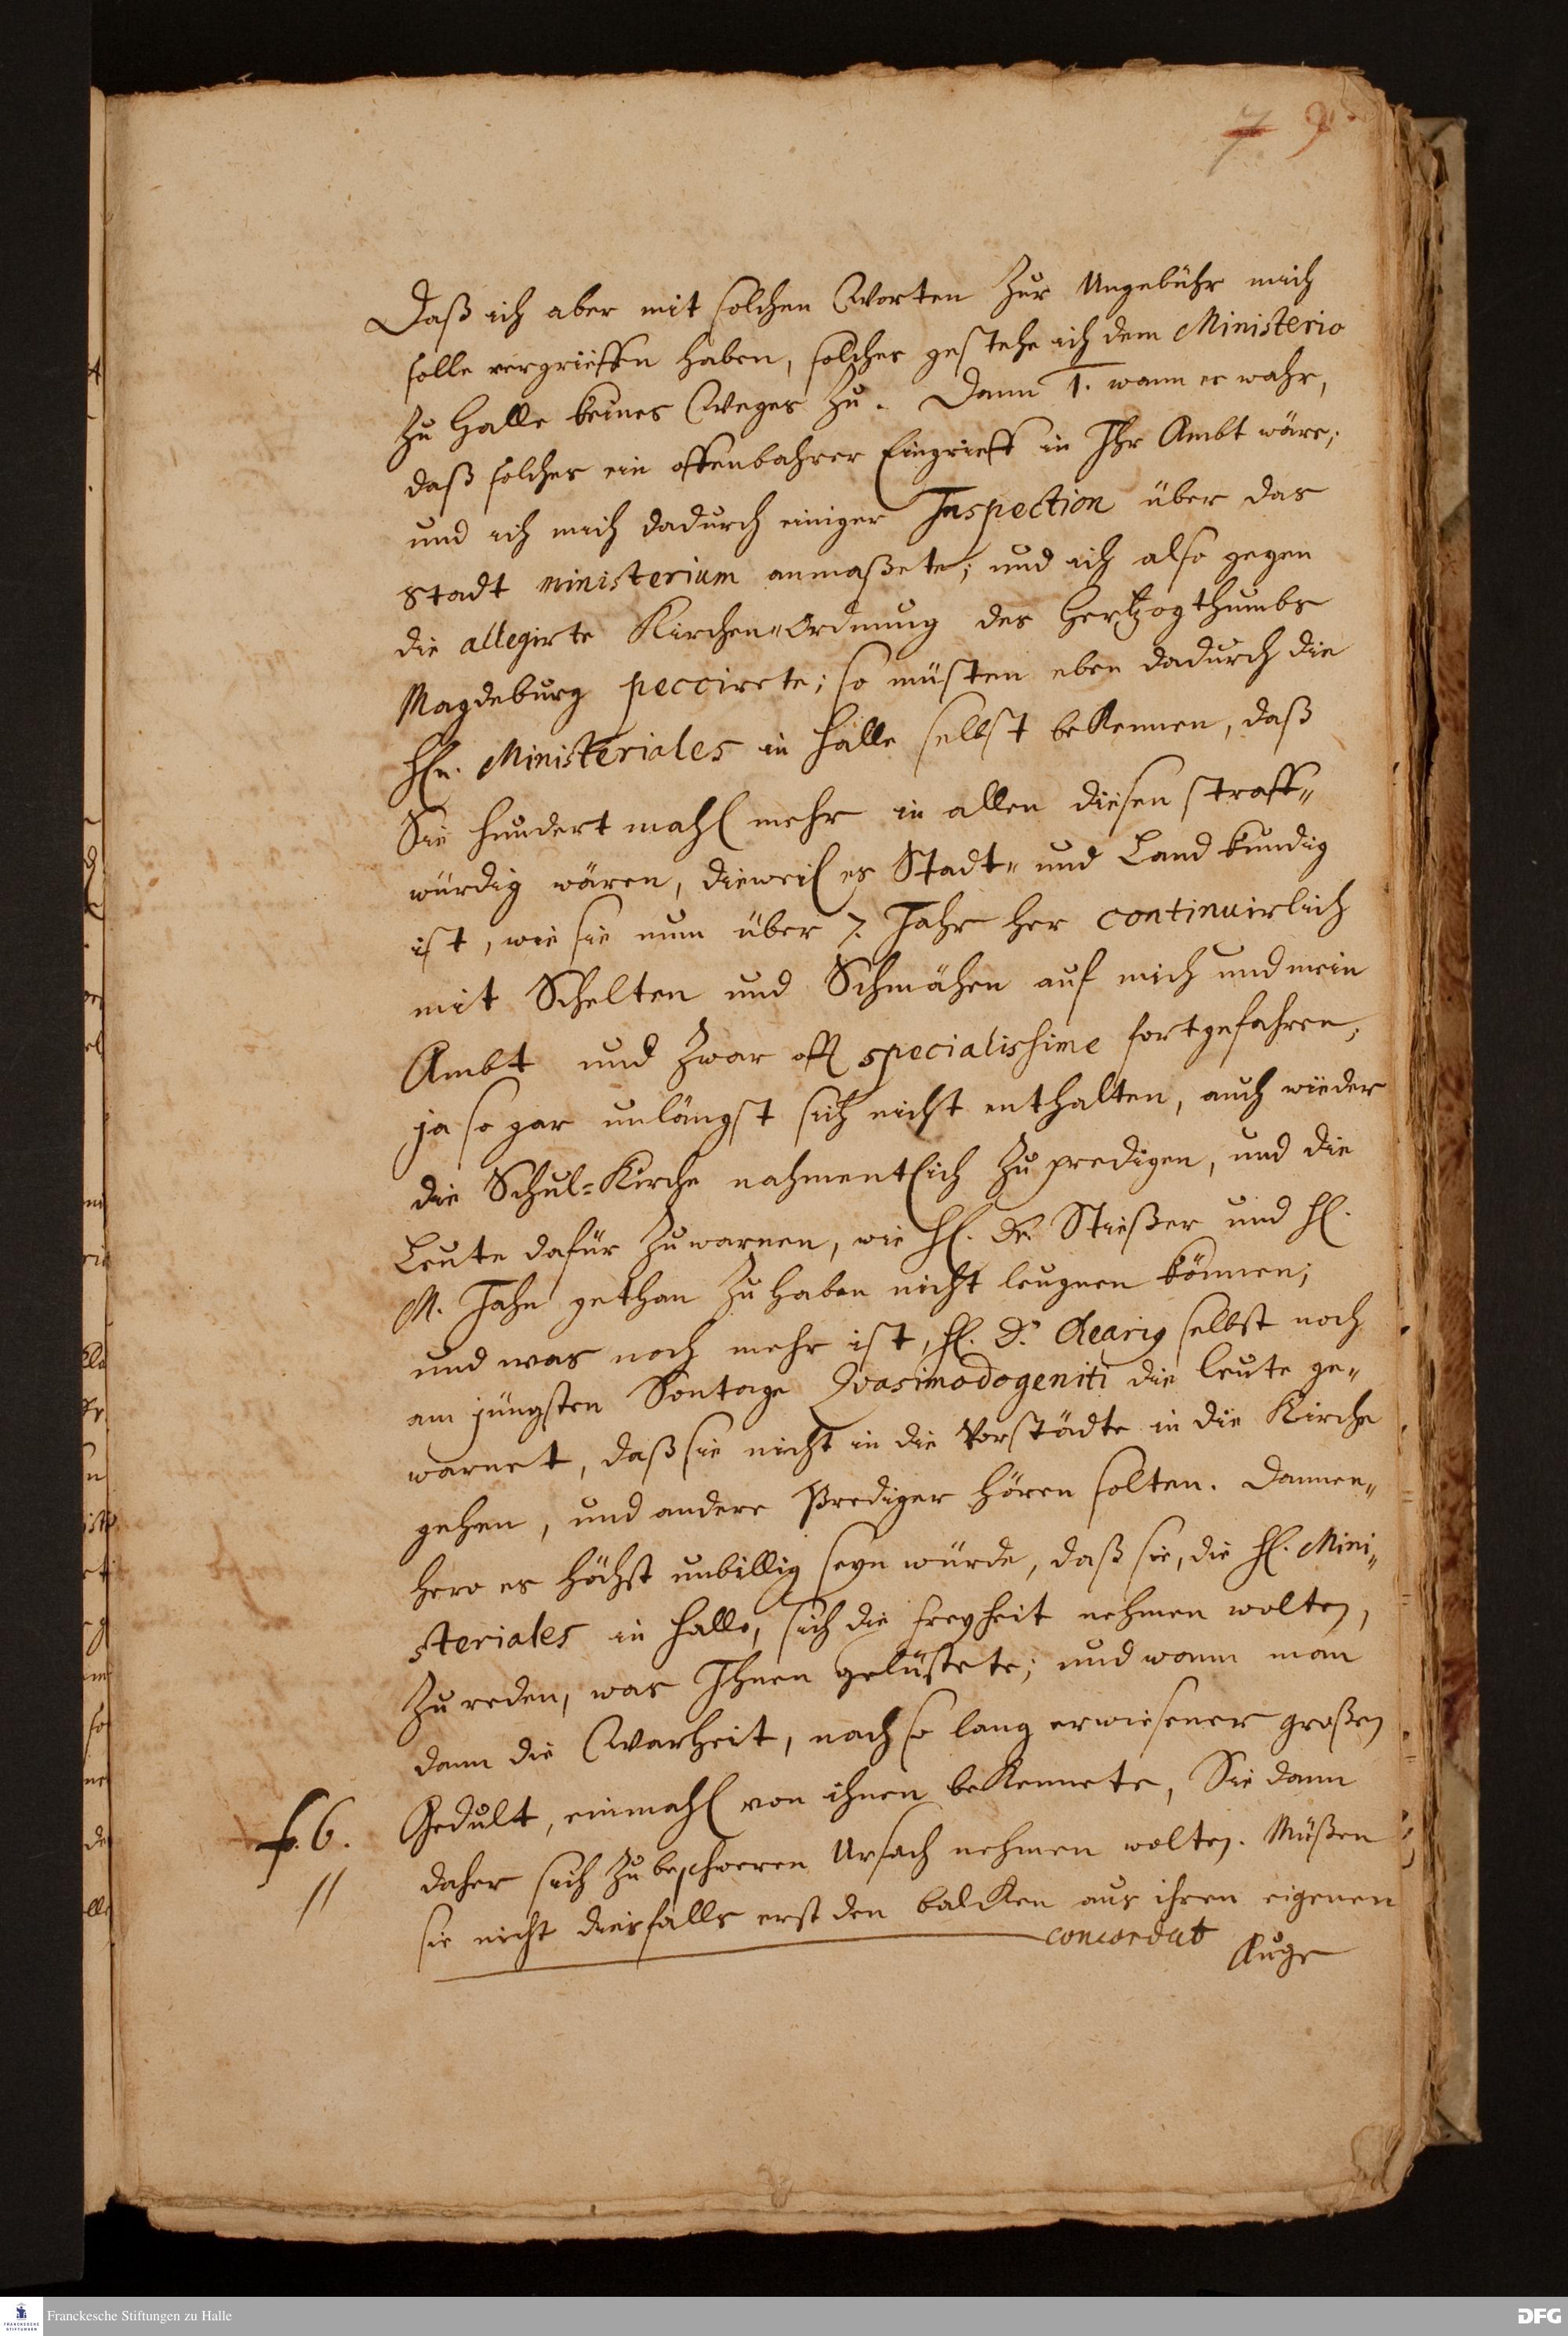 7 9.
Daß ich aber mit solchen Worten zur Ungebühr mich
solle vergrieffen haben, solches gestehe ich dem Ministerio
zu Halle keines Weges zu. Dann 1. wann es wahr,
daß solches ein offenbahrer Eingrieff in Ihr Ambt wäre;
und ich mich dadurch einiger Inspection über das
Stadt ministerium anmaßete; und ich also gegen
die allegirte Kirchen„Ordnung des Hertzogthumbs
Magdeburg peccirete; so müsten eben dadurch die
Hhn. Ministeriales in Halle selbst bekennen, daß
Sie hundert mahl mehr in allen diesen straff„
würdig wären, dieweil es Stadt„ und Land kundig
ist, wie sie nun über 7. Jahr her continuirlich
mit Schelten und Schmähen auf mich und mein
Ambt und zwar offt specialissime fortgefahren;
ja so gar unlängst sich nicht enthalten, auch wieder
die Schul=Kirche nahmentlich zu predigen, und die
Leute dafür zu warnen, wie H. Dr. Stießer und H.
M. Jahn gethan zu haben nicht leugnen können;
und was noch mehr ist, H. D. Olearius selbst noch
am jüngsten Sontage Qvasimodogeniti die leute ge„
warnet, daß sie nicht in die Vorstädte in die Kirche
gehen, und andere Prediger hören solten. Dannen„
hero es höchst unbillig seyn würde, daß sie, die H. Mini„
steriales in Halle, sich die freyheit nehmen wolten,
zu reden, was Ihnen gelüstete; und wann man
dann die Warheit, nach so lang erwiesener großen
Gedult, einmahl von ihnen bekennete, Sie dann
f. 6.
daher sich zu beschweren Ursach nehmen wolten. Müßen
//
sie nicht diesfalls erst den balcken aus ihren eigenen
concordat
Auge
Franckesche Stiftungen zu Halle
DFG